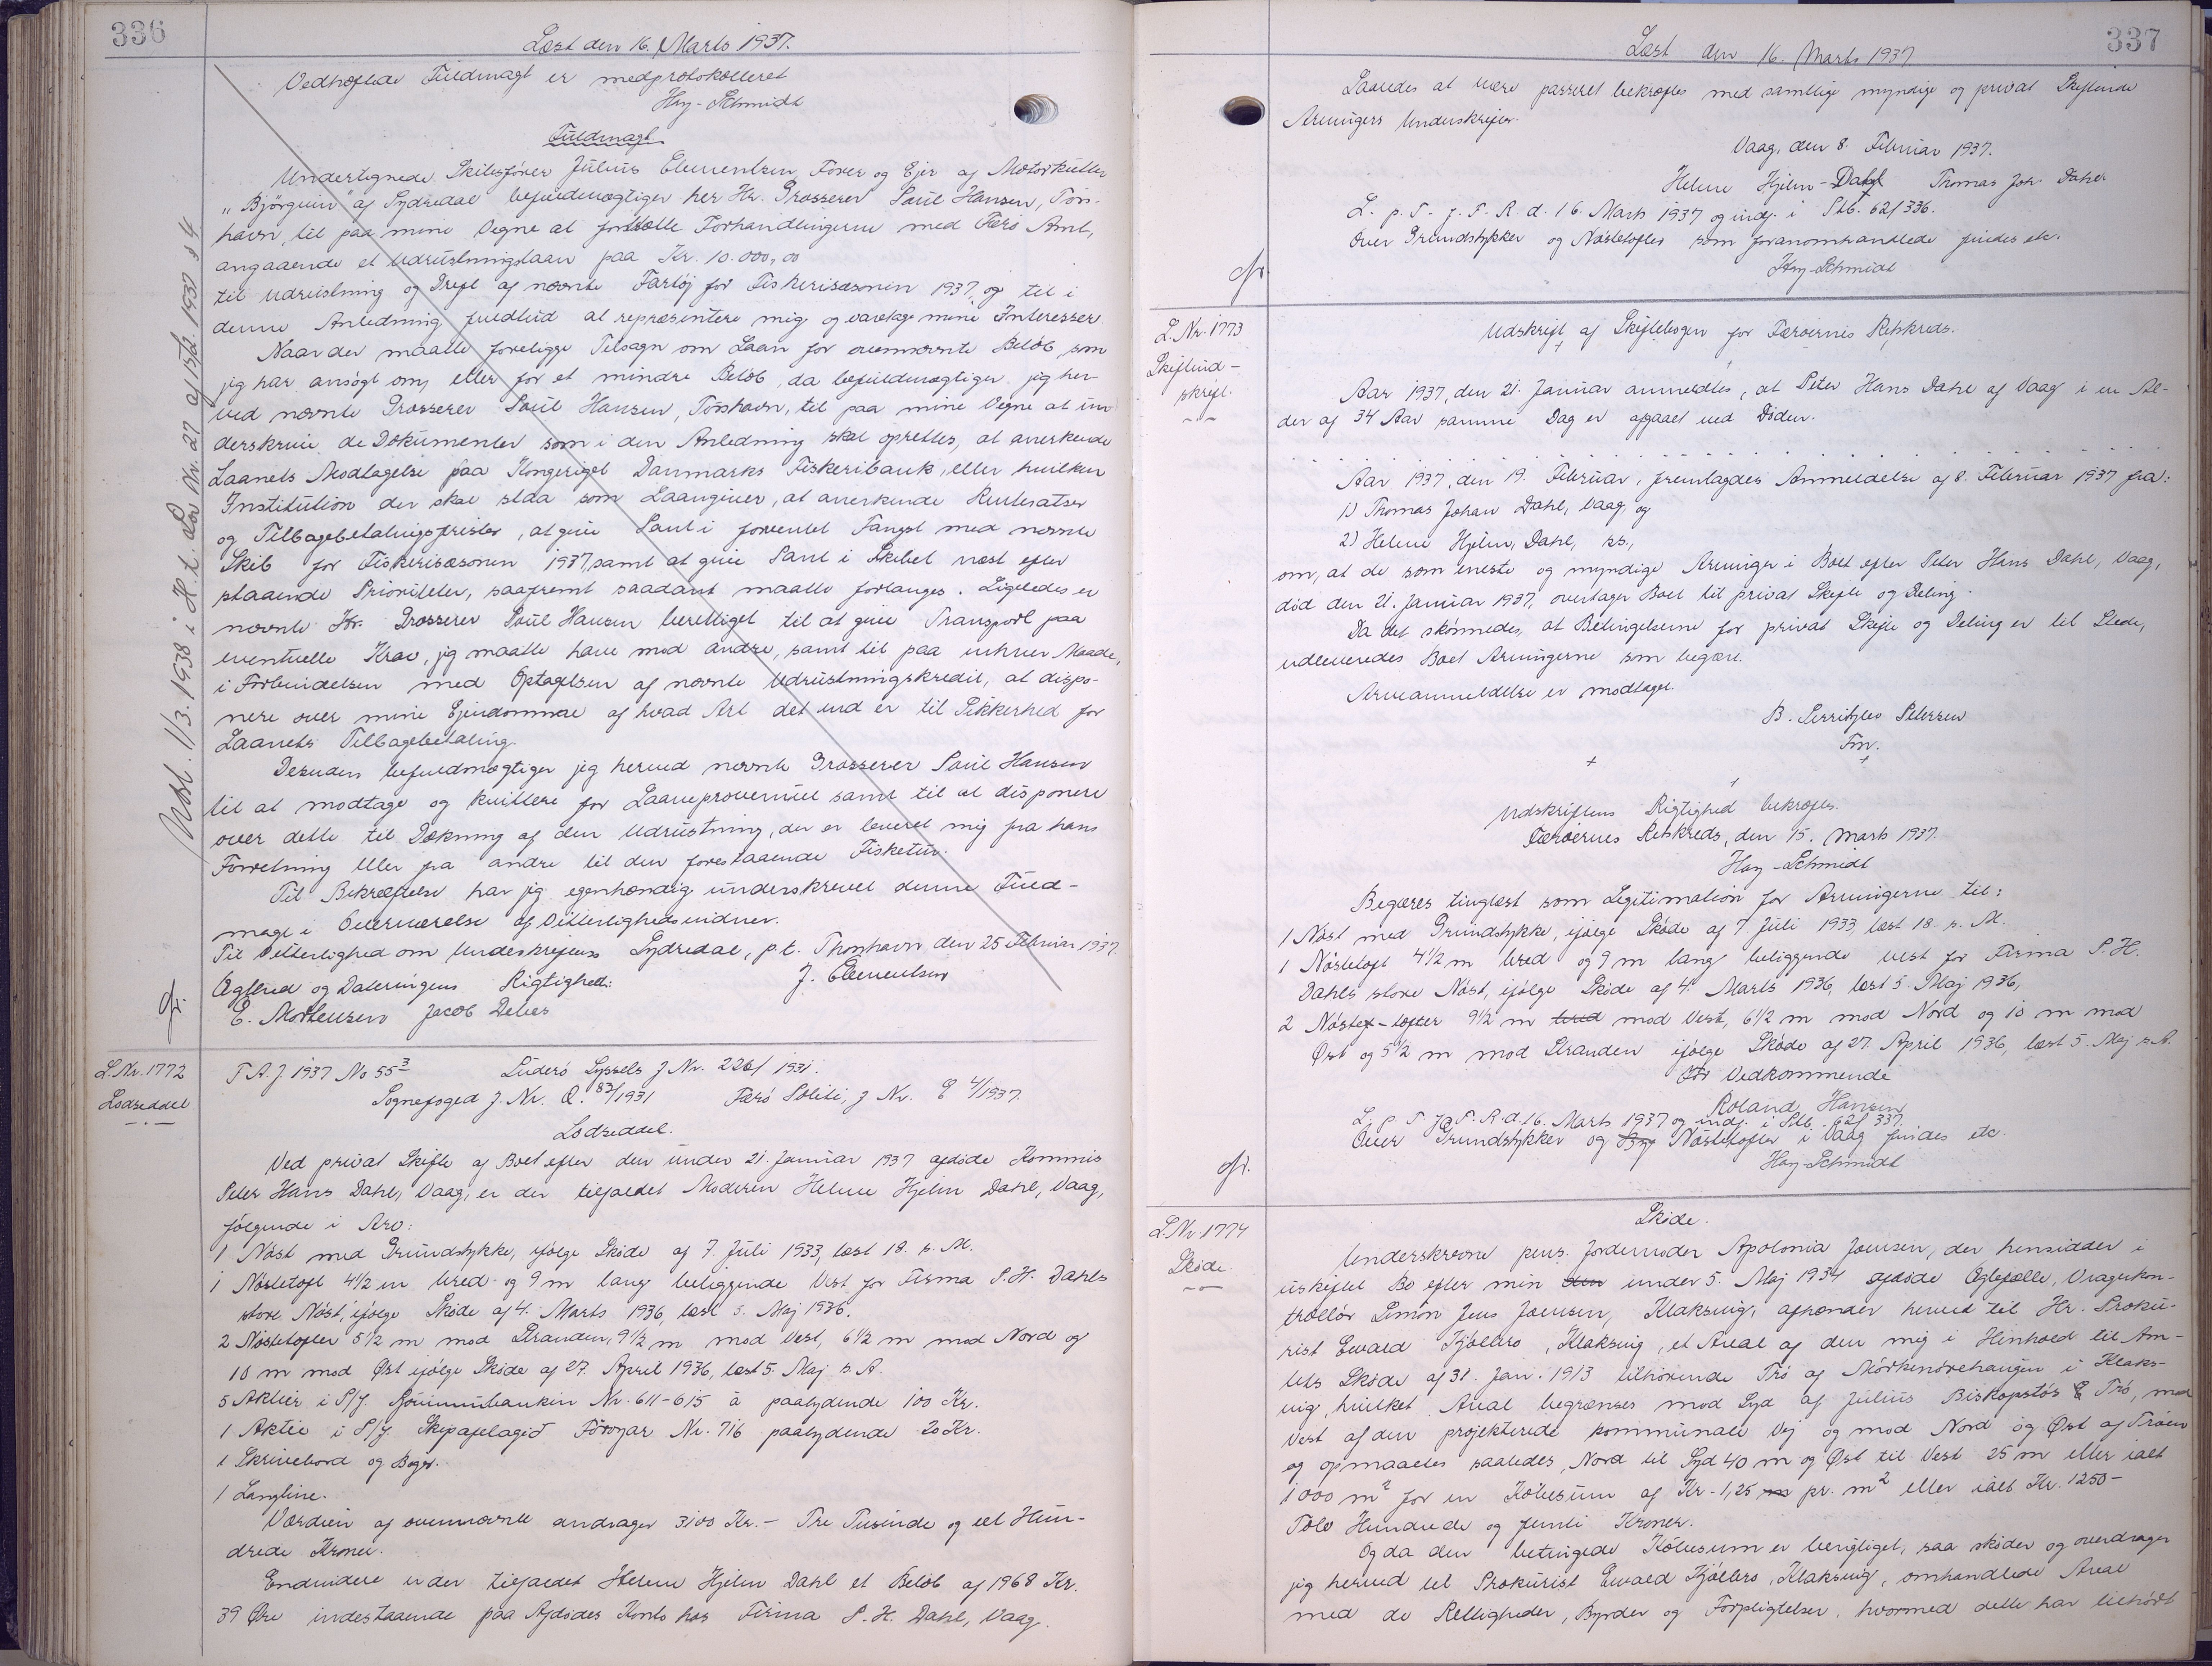 336
Læst den 16. Marts 1937.
Vedhæftede Fuldmagt er medprotokolleret
Hay-Schmidt
Fuldmagt
Undertegnede Skibsfører Julius Clementsen, Fører og Ejer af Motorkutter
"Bjørgvin" af Sydredal befuldmægtiger her Hr. Grosserer Poul Hansen, Tórs-
havn, til paa mine Vegne at fortsætte Forhandlingerne med Færø Amt,
angaaende et Udrustningslaan paa Kr. 10.000,00
til Udrustning og Drift af nævnte Fartøj for Fiskerisæsonen 1937, og til i
denne Anledning fuldtud at repræsentere mig og varetage mine Interesser
Naar der maatte foreligge Tilsagn om Laan for ovennævnte Beløb, som
jeg har ansøgt om, eller for et mindre Beløb, da befuldmægtiger jeg her-
ved nævnte Grosserer Poul Hansen, Tórshavn, til paa mine Vegne at un-
derskrive de Dokumenter som i den Anledning skal oprettes, at anerkende
Laanets Modtagelse paa Kongeriget Danmarks Fiskeribank, eller hvilken
Institution der skal staa som Laangiver, at anerkende Rentesatser
og Tilbagebetalingsfrister, at give Pant i forventet Fangst med nævnte
Skib for Fiskerisæsonen 1937, samt at give Pant i Skibet næst efter
staaende Prioriteter, saafremt saadant maatte forlanges. Ligeledes er
nævnte Hr. Grosserer Poul Hansen berettiget til at give Transport paa
eventuelle Krav, jeg maatte have mod andre, samt til paa enhver Maade,
i Forbindelsen med Optagelsen af nævnte Udrustningskredit, at dispo-
nere over mine Ejendomme af hvad Art det end er til Sikkerhed for
Laanets Tilbagebetaling.
Desuden befuldmægtiger jeg herved nævnte Grosserer Poul Hansen
til at modtage og kvittere for Laaneprovenuet samt til at disponere
over dette til Dækning af den Udrustning, der er leveret mig fra hans
Forretning eller fra andre til den forestaaende Fisketur.
Til Bekræftelse har jeg egenhændig underskrevet denne Fuld-
magt i Overværelse af Vitterlighedsvidner.
Til Vitterlighed om Underskriftens Sydredal, p.t. Thorshavn den 25 Februar 1937.
Ægthed og Dateringens Rigtighed: J. Clementsen
E. Mortensen Jacob Debes
Modt. 1/3. 1938 i H. t. Lov Nr. 27 af 13/2. 1937 § 4.
L.Nr. 1772
Lodseddel
F.A.J. 1937 No 55³ Suderø Syssels J Nr. 226/1931.
Sognefoged J. Nr. Q. 83/1931 Færø Politi, J Nr. E 4/1937.
Lodseddel.
Ved privat Skifte af Boet efter den under 21. Januar 1937 afdøde Kommis
Peter Hans Dahl, Vaag, er der tilfaldet Moderen Helene Hjelm Dahl, Vaag,
følgende i Arv:
1 Nøst med Grundstykke, ifølge Skøde af 7. Juli 1933, læst 18. s. M.
1 Nøstetoft 4½ m bred og 9 m lang beliggende Vest for Firma P.H. Dahls
store Nøst, ifølge Skøde af 4. Marts 1936, læst 5. Maj 1936.
2 Nøstetofter 5½ m mod Stranden, 9½ m mod Vest, 6½ m mod Nord og
10 m mod Øst ifølge Skøde af 27. April 1936, læst 5. Maj s. A.
5 Aktier i P/f. Sjóvinnubankin Nr. 611-615 à paalydende 100 Kr.
1 Aktie i P/f. Skipafelagið Føroyar Nr. 716 paalydende 20 Kr.
1 Skrivebord og Bøger.
1 Langline.
Værdien af ovennævnte andrager 3100 Kr. - Tre Tusinde og eet Hun-
drede Kroner.
Endvidere er der tilfaldet Helene Hjelm Dahl et Beløb af 1968 Kr.
39 Øre indestaaende paa Afdødes Konto hos Firma P.H. Dahl, Vaag.
337
Læst den 16. Marts 1937
Saaledes at være passeret bekræftes med samtlige myndige og privat Skiftende
Arvingers Underskrifter.
Vaag, den 8. Februar 1937.
Helene Hjelm-Dahl Thomas Joh. Dahl
L. p. T. f. F. R. d. 16. Marts 1937 og indf. i Ptb. 62/336.
Over Grundstykker og Nøstetofter som foranomhandlede findes etc.
Hay-Schmidt
L.Nr. 1773
Skifteud-
skrift.
Udskrift af Skiftebogen for Færøernes Retskreds.
Aar 1937, den 21. Januar anmeldtes, at Peter Hans Dahl af Vaag i en Al-
der af 34 Aar samme Dag er afgaaet ved Døden.
Aar 1937, den 19. Februar, fremlagdes Anmeldelse af 8. Februar 1937 fra:
1) Thomas Johan Dahl, Vaag, og
2) Helene Hjelm, Dahl, ss.,
om, at de som eneste og myndige Arvinger i Boet efter Peter Hans Dahl, Vaag,
død den 21. Januar 1937, overtager Boet til privat Skifte og Deling.
Da det skønnedes, at Betingelserne for privat Skifte og Deling er til Stede,
udleveredes Boet Arvingerne som begært.
Arveanmeldelse er modtaget.
B. Petersen
Fm.
Udskriftens Rigtighed bekræftes.
Færøernes Retskreds, den 15. Marts 1937.
Hay-Schmidt
Begæres tinglæst som Legitimation for Arvingerne til:
1 Nøst med Grundstykke, ifølge Skøde af 7 Juli 1933, læst 18. s. M.
1 Nøstetoft 4½ m bred og 9 m lang beliggende vest for Firma P.H.
Dahls store Nøst, ifølge Skøde af 4. Marts 1936, læst 5. Maj 1936,
2 Nøste-tofter 9½ m bred mod Vest, 6½ m mod Nord og 10 m mod
Øst og 5½ m mod Stranden ifølge Skøde af 27. April 1936, læst 5. Maj s.A.
For Vedkommende
Roland Hansen
L. p. T. f. F. R. d. 16. Marts 1937 og indf. i Ptb. 62/337.
Over Grundstykker og Nøstetofter i Vaag findes etc.
Hay-Schmidt
L.Nr 1774
Skøde.
Skøde.
Underskrevne pens. Jordemoder Apolonia Joensen, der hensidder i
uskiftet Bo efter min den under 5. Maj 1934 afdøde Ægtefælle, Vragerkon-
trollør Simon Jens Joensen, Klaksvig, afhænder herved til Hr. Proku-
rist Ewald Kjølbro, Klaksvig, et Areal af den mig i Henhold til Am-
tets Skøde af 31. Jan. 1913 tilhørende Trø af Mørkenørehaugen i Klaks-
vig, hvilket Areal begrænses mod Syd af Julius Biskopstøs Trø, mod
Vest af den projekterede kommunale Vej og mod Nord og Øst af Trøen
og opmaales saaledes, Nord til Syd 40 m og Øst til Vest 25 m eller ialt
1000 m² for en Købesum af Kr. 1,25 m pr. m² eller ialt Kr. 1250-
Tolv Hundrede og femti Kroner.
Og da den betingede Købesum er berigtiget, saa skøder og overdrager
jeg herved til Prokurist Ewald Kjølbro, Klaksvig, omhandlede Areal
med de Rettigheder, Byrder og Forpligtelser, hvormed dette har tilhørt